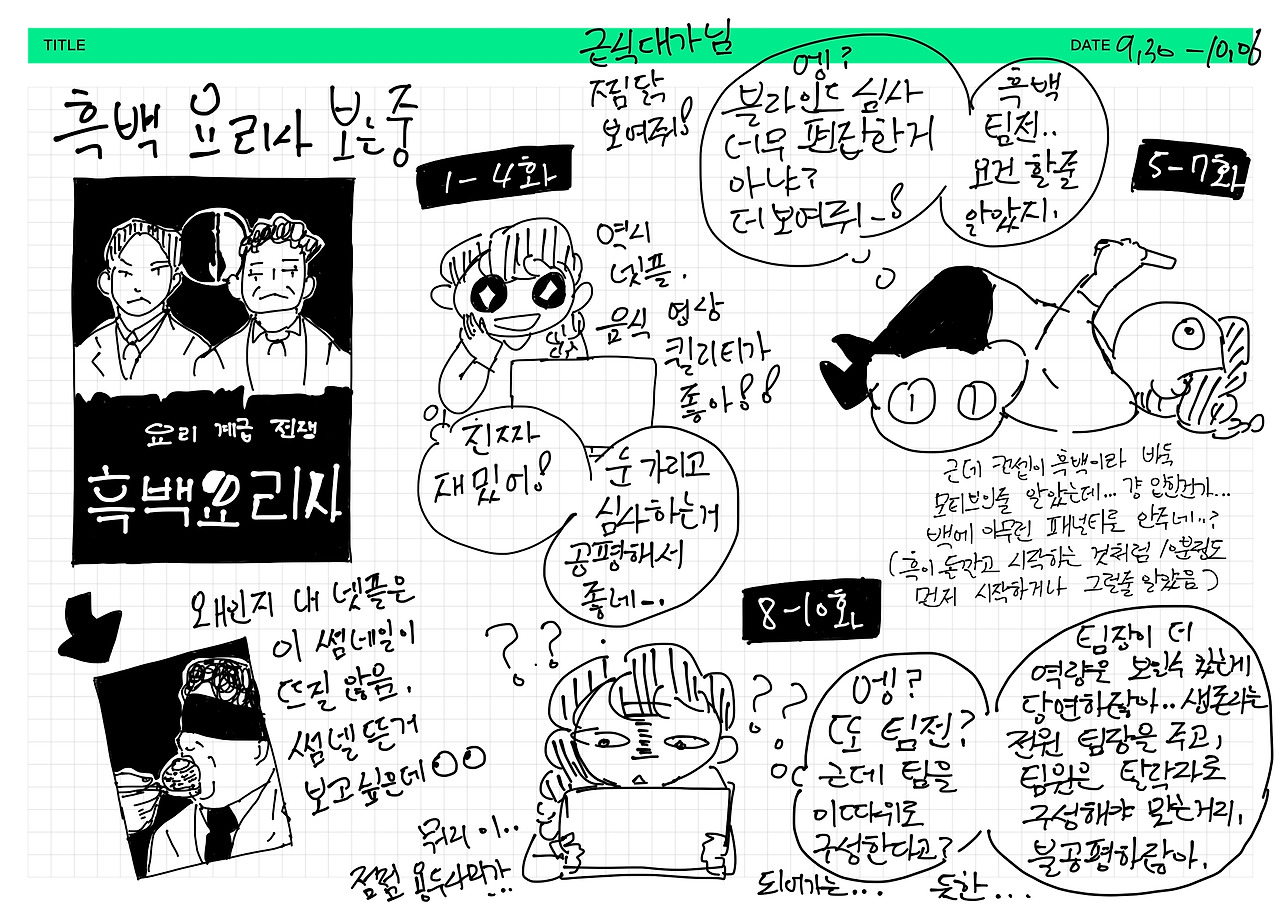 TITLE
DATE 9.30 - 10.06
흑백 요리사 보는중
요리 계급 전쟁
흑백요리사
왜인지 내 넷플은
이 썸네일이
뜨질 않음.
썸넬 뜬거
보고싶은데
1-4화
급식대가님
찜닭
보여줘!
역시
넷플.
음식 영상
퀄리티가
좋아!!
진짜
재밌어!
눈 가리고
심사하는거
공평해서
좋네~.
5-7화
엥?
블라인드 심사
너무 편집한거
아냐?
더 보여줘~!
흑백
팀전..
요건 할줄
알았지.
근데 컨셉이 흑백이라 바둑
모티브인줄 알았는데... 걍 입힌건가...
백에 아무런 패널티를 안주네..?
(흑이 돌깔고 시작하는 것처럼 10분정도
먼저 시작하거나 그럴줄 알았음)
8-10화
??
??
엥?
또 팀전?
근데 팀을
이따위로
구성한다고?
팀장이 더
역량을 보일수 있는게
당연하잖아.. 생존자는
전원 팀장을 주고,
팀원은 탈락자로
구성해야 맞는거지,
불공평하잖아.
뭐리 이..
점점 용두사미가..
되어가는... 듯한...